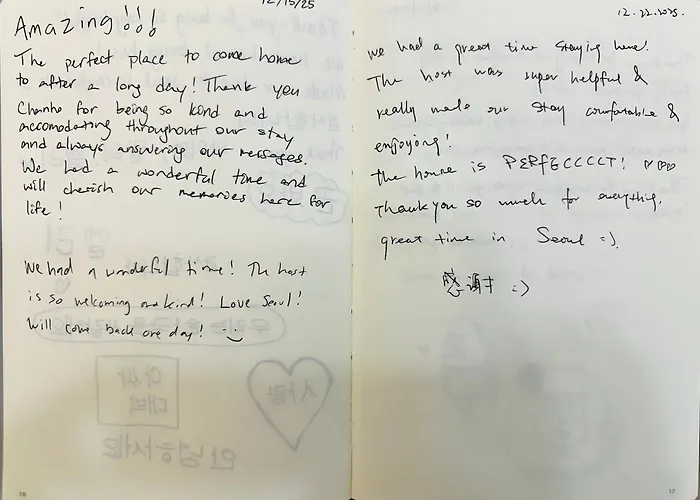 12/15/25
Amazing!!!
The perfect place to come home
to after a long day! Thank you
Chanho for being so kind and
accomodating throughout our stay
and always answering our messages.
We had a wonderful time and
will cherish our memories here for
life!
We had a wonderful time! The host
is so welcoming and kind! Love Seoul!
Will come back one day!
16
12.22.2025.
we had a great time staying here!
The host was super helpful &
really made our stay comfortable &
enjoying!
the house is PERfECCCCT! ♡♡♡
Thank you so much for everything.
great time in Seoul =).
感謝 :)
17